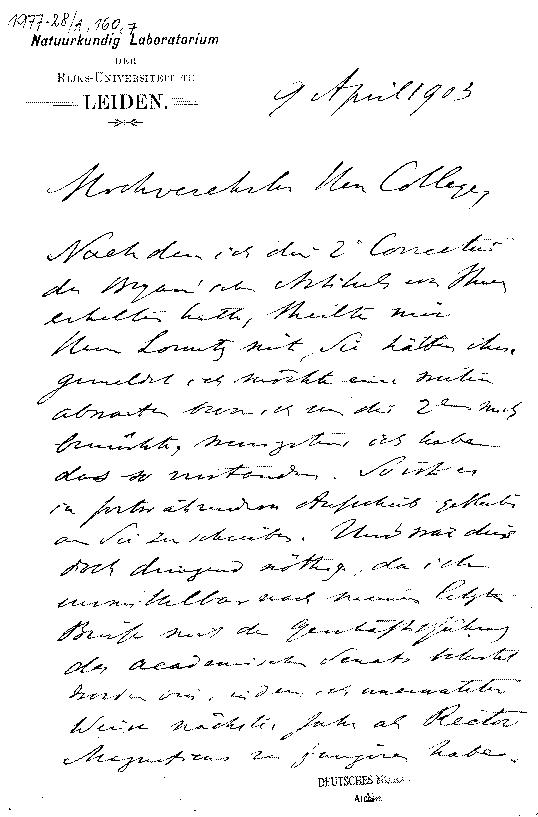 1977-28/A, 160,7
Natuurkundig Laboratorium
DER
RIJKS-UNIVERSITEIT TE
LEIDEN.
9 April 1903
Hochverehrter Herr College,
Nachdem ich die 2e Correctur
des Artikels von Ihnen
erhalten hatte, theilte mir
Herr Lorentz mit, Sie hätten ihm
gemeldet ich möchte eine
abwarten bevor ich um die 2te mich
bemühte, wenigstens ich habe
das so verstanden. So ist es
in fortwährendem Aufschub geblieben
an Sie zu schreiben. Und war dies
doch dringend nöthig, da ich
unmittelbar nach meinem letzten
Briefe mit der Geschäftsführung
des academischen Senats belastet
worden bin, indem ich unerwarteter
Weise nächstes Jahr als Rector
Magnificus zu fungiren habe.
DEUTSCHES MUSEUM
Archiv